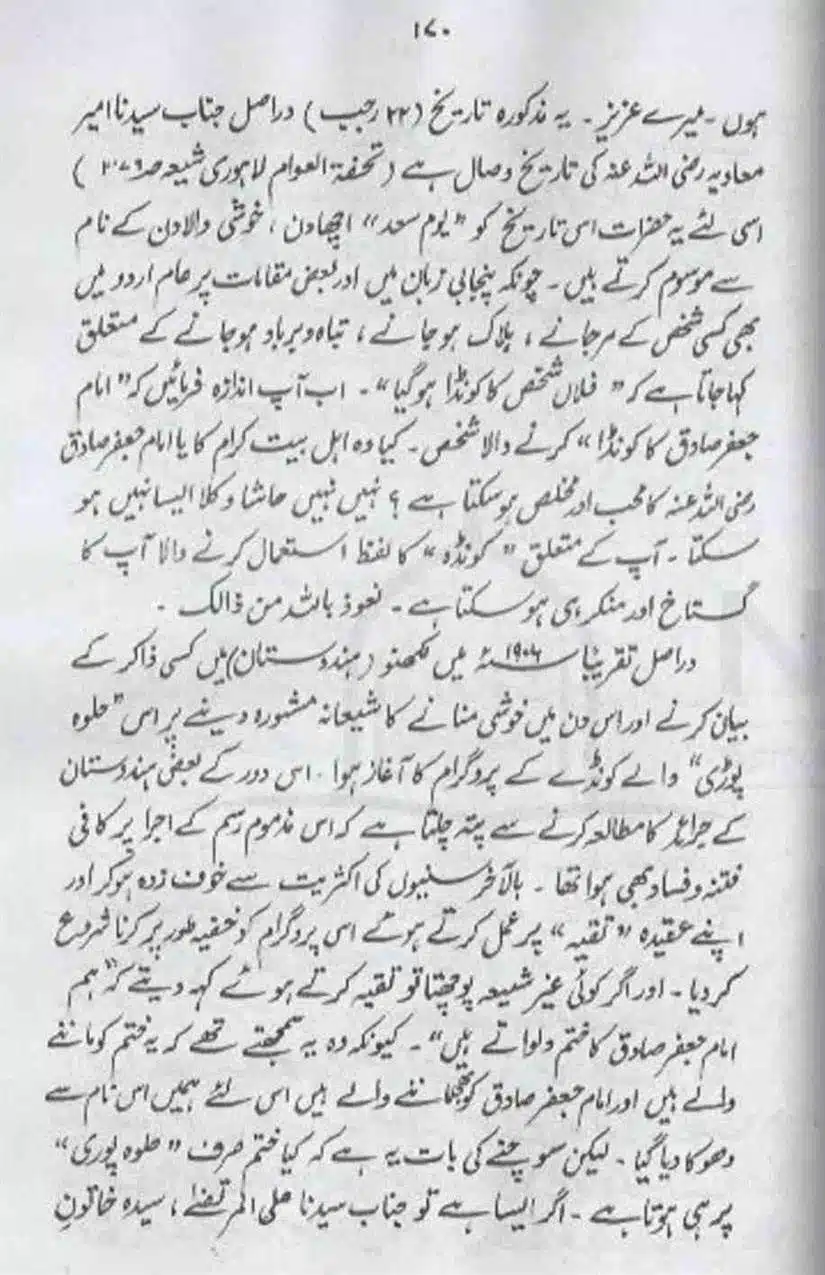 ۱۷۰
ہوں ۔ میرے عزیز ۔ یہ مذکورہ تاریخ (۲۲ رجب) دراصل جناب سیدنا امیر
معاویہ رضی اللہ عنہ کی تاریخ وصال ہے (تحفۃ العوام لاہوری شیعہ ص۲۷۶)
اسی لئے یہ حضرات اس تاریخ کو ”یوم سعد“ اچھا دن ، خوشی والا دن کے نام
سے موسوم کرتے ہیں ۔ چونکہ پنجابی زبان میں اور بعض مقامات پر عام اردو میں
بھی کسی شخص کے مرجانے ، ہلاک ہو جانے ، تباہ و برباد ہو جانے کے متعلق
کہا جاتا ہے کہ ”فلاں شخص کا کونڈا ہوگیا“ ۔ اب آپ اندازہ فرمائیں کہ ”امام
جعفر صادق کا کونڈا“ کرنے والا شخص ۔ کیا وہ اہل بیت کرام کا یا امام جعفر صادق
رضی اللہ عنہ کا محب اور مخلص ہوسکتا ہے ؟ نہیں نہیں حاشا و کلا ایسا نہیں ہو
سکتا ۔ آپ کے متعلق ”کونڈہ“ کا لفظ استعمال کرنے والا آپ کا
گستاخ اور منکر ہی ہوسکتا ہے ۔ نعوذ باللہ من ذالک ۔
دراصل تقریباً ۱۹۰۶ سنہ میں لکھنو (ہندوستان) میں کسی ذاکر کے
بیان کرنے اور اس دن میں خوشی منانے کا شیعانہ مشورہ دینے پر اس ”حلوہ
پوڑی“ والے کونڈے کے پروگرام کا آغاز ہوا ۔ اس دور کے بعض ہندوستان
کے جرائد کا مطالعہ کرنے سے پتہ چلتا ہے کہ اس مذموم رسم کے اجرا پر کافی
فتنہ و فساد بھی ہوا تھا ۔ بالآخر سنیوں کی اکثریت سے خوف زدہ ہوکر اور
اپنے عقیدہ ”تقیہ“ پر عمل کرتے ہوئے اس پروگرام کو خفیہ طور پر کرنا شروع
کردیا ۔ اور اگر کوئی غیر شیعہ پوچھتا تو تقیہ کرتے ہوئے کہہ دیتے کہ ”ہم
امام جعفر صادق کا ختم دلواتے ہیں“ ۔ کیونکہ وہ یہ سمجھتے تھے کہ یہ ختم کو ماننے
والے ہیں اور امام جعفر صادق کو بھی ماننے والے ہیں اس لئے ہمیں اس نام سے
دھوکا دیا گیا ۔ لیکن سوچنے کی بات یہ ہے کہ کیا ختم صرف ”حلوہ پوری“
پر ہی ہوتا ہے ۔ اگر ایسا ہے تو جناب سیدنا علی المرتضےٰ ، سیدہ خاتونِ